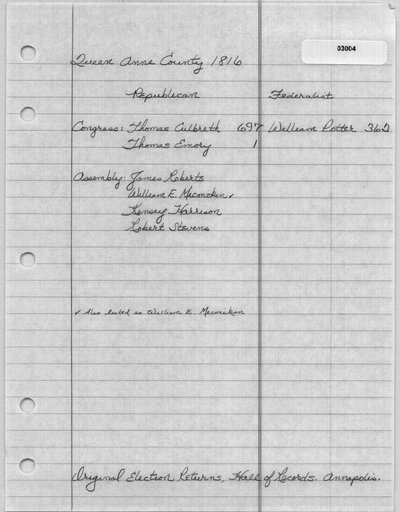 03004
Queen Anne County 1816
Republican Federalist
Congress: Thomas Culbreth 697 William Potter 362
Thomas Emory 1
Assembly: James Roberts
William E. Meconekin ✓
Kensey Harrison
Robert Stevens
✓ Also listed as William E. Meconikin
Original Election Returns, Hall of Records. Annapolis.